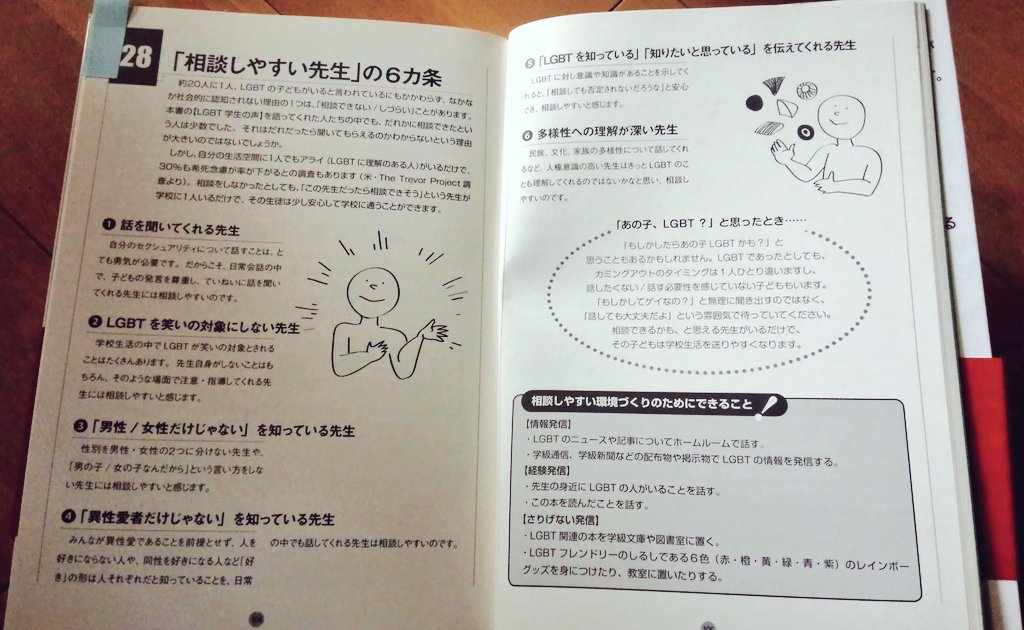 28
「相談しやすい先生」の6カ条
約20人に1人、LGBTの子どもがいると言われているにもかかわらず、なかな
か社会的に認知されない理由の1つは、「相談できない/しづらい」ことがあります。
本書の【LGBT学生の声】を語ってくれた人たちの中でも、だれかに相談できたとい
う人は少数でした。それはだれだったら聞いてもらえるのかわからないという理由
が大きいのではないでしょうか。
しかし、自分の生活空間に1人でもアライ(LGBTに理解のある人)がいるだけで、
30%も希死念慮が率が下がるとの調査もあります(米・The Trevor Project調
査より)。相談をしなかったとしても、「この先生だったら相談できそう」という先生が
学校に1人いるだけで、その生徒は少し安心して学校に通うことができます。
❶ 話を聞いてくれる先生
自分のセクシュアリティについて話すことは、と
ても勇気が必要です。だからこそ、日常会話の中
で、子どもの発言を尊重し、ていねいに話を聞い
てくれる先生には相談しやすいのです。
❷ LGBTを笑いの対象にしない先生
学校生活の中でLGBTが笑いの対象とされる
ことはたくさんあります。先生自身がしないことはも
ちろん、そのような場面で注意・指導してくれる先
生には相談しやすいと感じます。
❸「男性/女性だけじゃない」を知っている先生
性別を男性・女性の2つに分けない先生や、
「男の子/女の子なんだから」という言い方をしな
い先生には相談しやすいと感じます。
❹「異性愛者だけじゃない」を知っている先生
みんなが異性愛であることを前提とせず、人を
好きにならない人や、同性を好きになる人など「好
き」の形は人それぞれだと知っていることを、日常
の中でも話してくれる先生は相談しやすいのです。
❺「LGBTを知っている」「知りたいと思っている」を伝えてくれる先生
LGBTに対し意識や知識があることを示してく
れると、「相談しても否定されないだろうな」と安心
でき、相談しやすいと感じます。
❻ 多様性への理解が深い先生
民族、文化、家族の多様性について話してくれ
るなど、人権意識の高い先生はきっとLGBTのこ
とも理解してくれるのではないかなと思い、相談し
やすいのです。
「あの子、LGBT?」と思ったとき……
「もしかしたらあの子LGBTかも?」と
思うこともあるかもしれません。LGBTであったとしても、
カミングアウトのタイミングは1人ひとり違いますし、
話したくない/話す必要性を感じていない子どももいます。
「もしかしてゲイなの?」と無理に聞き出すのではなく、
「話しても大丈夫だよ」という雰囲気で待っていてください。
相談できるかも、と思える先生がいるだけで、
その子どもは学校生活を送りやすくなります。
相談しやすい環境づくりのためにできること!
【情報発信】
・LGBTのニュースや記事についてホームルームで話す。
・学級通信、学級新聞などの配布物や掲示物でLGBTの情報を発信する。
【経験発信】
・先生の身近にLGBTの人がいることを話す。
・この本を読んだことを話す。
【さりげない発信】
・LGBT関連の本を学級文庫や図書室に置く。
・LGBTフレンドリーのしるしである6色(赤・橙・黄・緑・青・紫)のレインボー
グッズを身につけたり、教室に置いたりする。